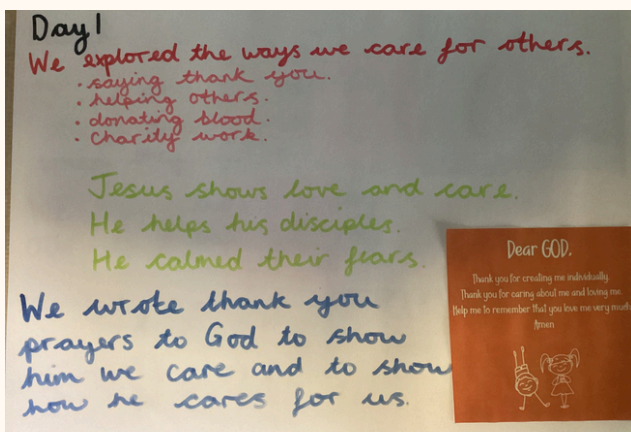 Day 1
We explored the ways we care for others.
· saying thank you.
· helping others.
· donating blood.
· Charity work.
Jesus shows love and care.
He helps his disciples.
He calmed their fears.
We wrote thank you
prayers to God to show
him we care and to show
how he cares for us.
Dear GOD,
Thank you for creating me individually.
Thank you for caring about me and loving me.
Help me to remember that you love me very much
Amen